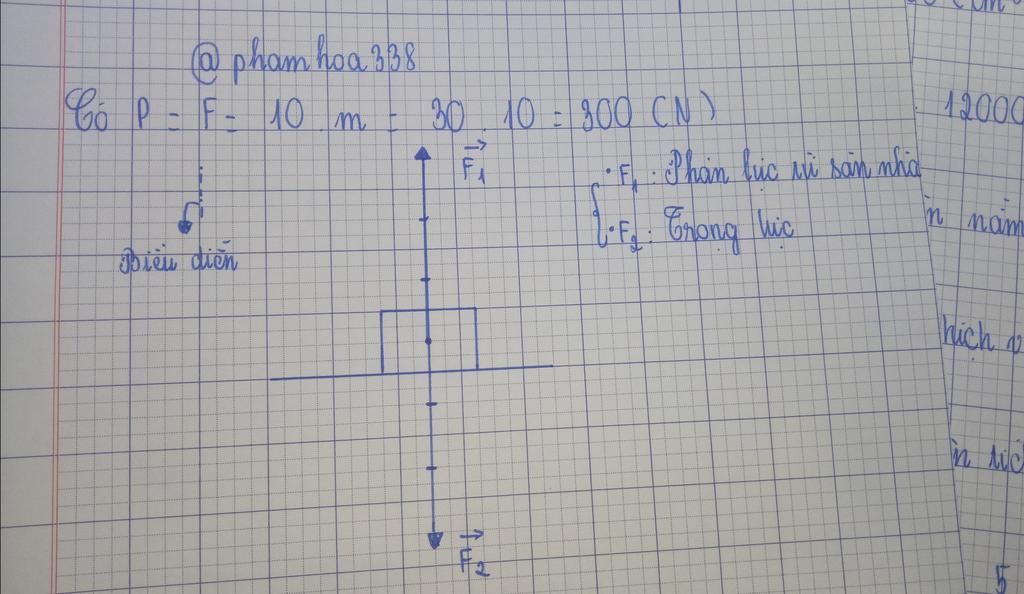 @phamhoa338
Có P = F = 10 m = 30 . 10 = 300 (N)
Biểu diễn
F₁
• F₁ : Phản lực từ sàn nhà
• F₂ : Trọng lực
F₂
12000
n năm
hịch v
5